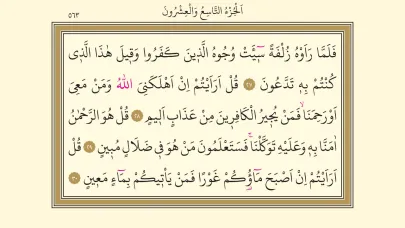 اَلْجُزْءُ التَّاسِعُ وَالْعِشْرُونَ
٥٦٣
فَلَمَّا رَاَوْهُ زُلْفَةً سٓيـَٔتْ وُجُوهُ الَّذ۪ينَ كَفَرُوا وَق۪يلَ هٰذَا الَّذ۪ى
كُنْتُمْ بِه۪ تَدَّعُونَ ٢٧ قُلْ اَرَاَيْتُمْ اِنْ اَهْلَكَنِىَ اللّٰهُ وَمَنْ مَعِىَ
اَوْ رَحِمَنَاۙ فَمَنْ يُج۪يرُ الْكَافِر۪ينَ مِنْ عَذَابٍ اَل۪يمٍ ٢٨ قُلْ هُوَ الرَّحْمٰنُ
اٰمَنَّا بِه۪ وَعَلَيْهِ تَوَكَّلْنَاۚ فَسَتَعْلَمُونَ مَنْ هُوَ ف۪ى ضَلَالٍ مُب۪ينٍ ٢٩ قُلْ
اَرَاَيْتُمْ اِنْ اَصْبَحَ مَٓاؤُ۬كُمْ غَوْرًا فَمَنْ يَاْت۪يكُمْ بِمَٓاءٍ مَع۪ينٍ ٣٠